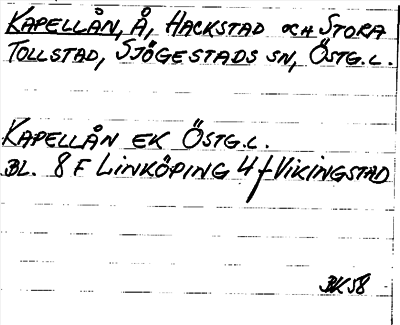 KAPELLÅN, Å, HACKSTAD OCH STORA
TOLLSTAD, SJÖGESTADS SN, ÖSTG.L.
KAPELLÅN EK ÖSTG.L.
BL. 8 F LINKÖPING 4 f VIKINGSTAD
BK58